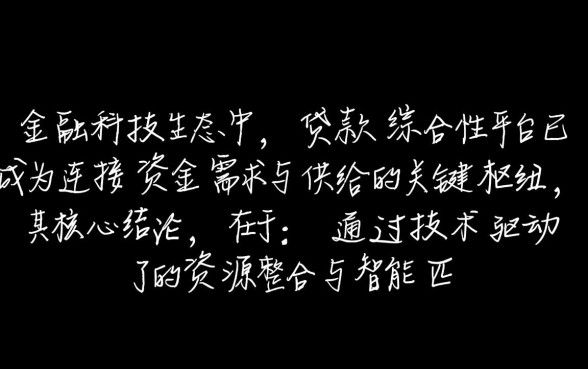 金融科技生态中，贷款综合性平台已
成为连接资金需求与供给的关键枢纽，
其核心结论，在于：通过技术驱动
了的资源整合与智能匹